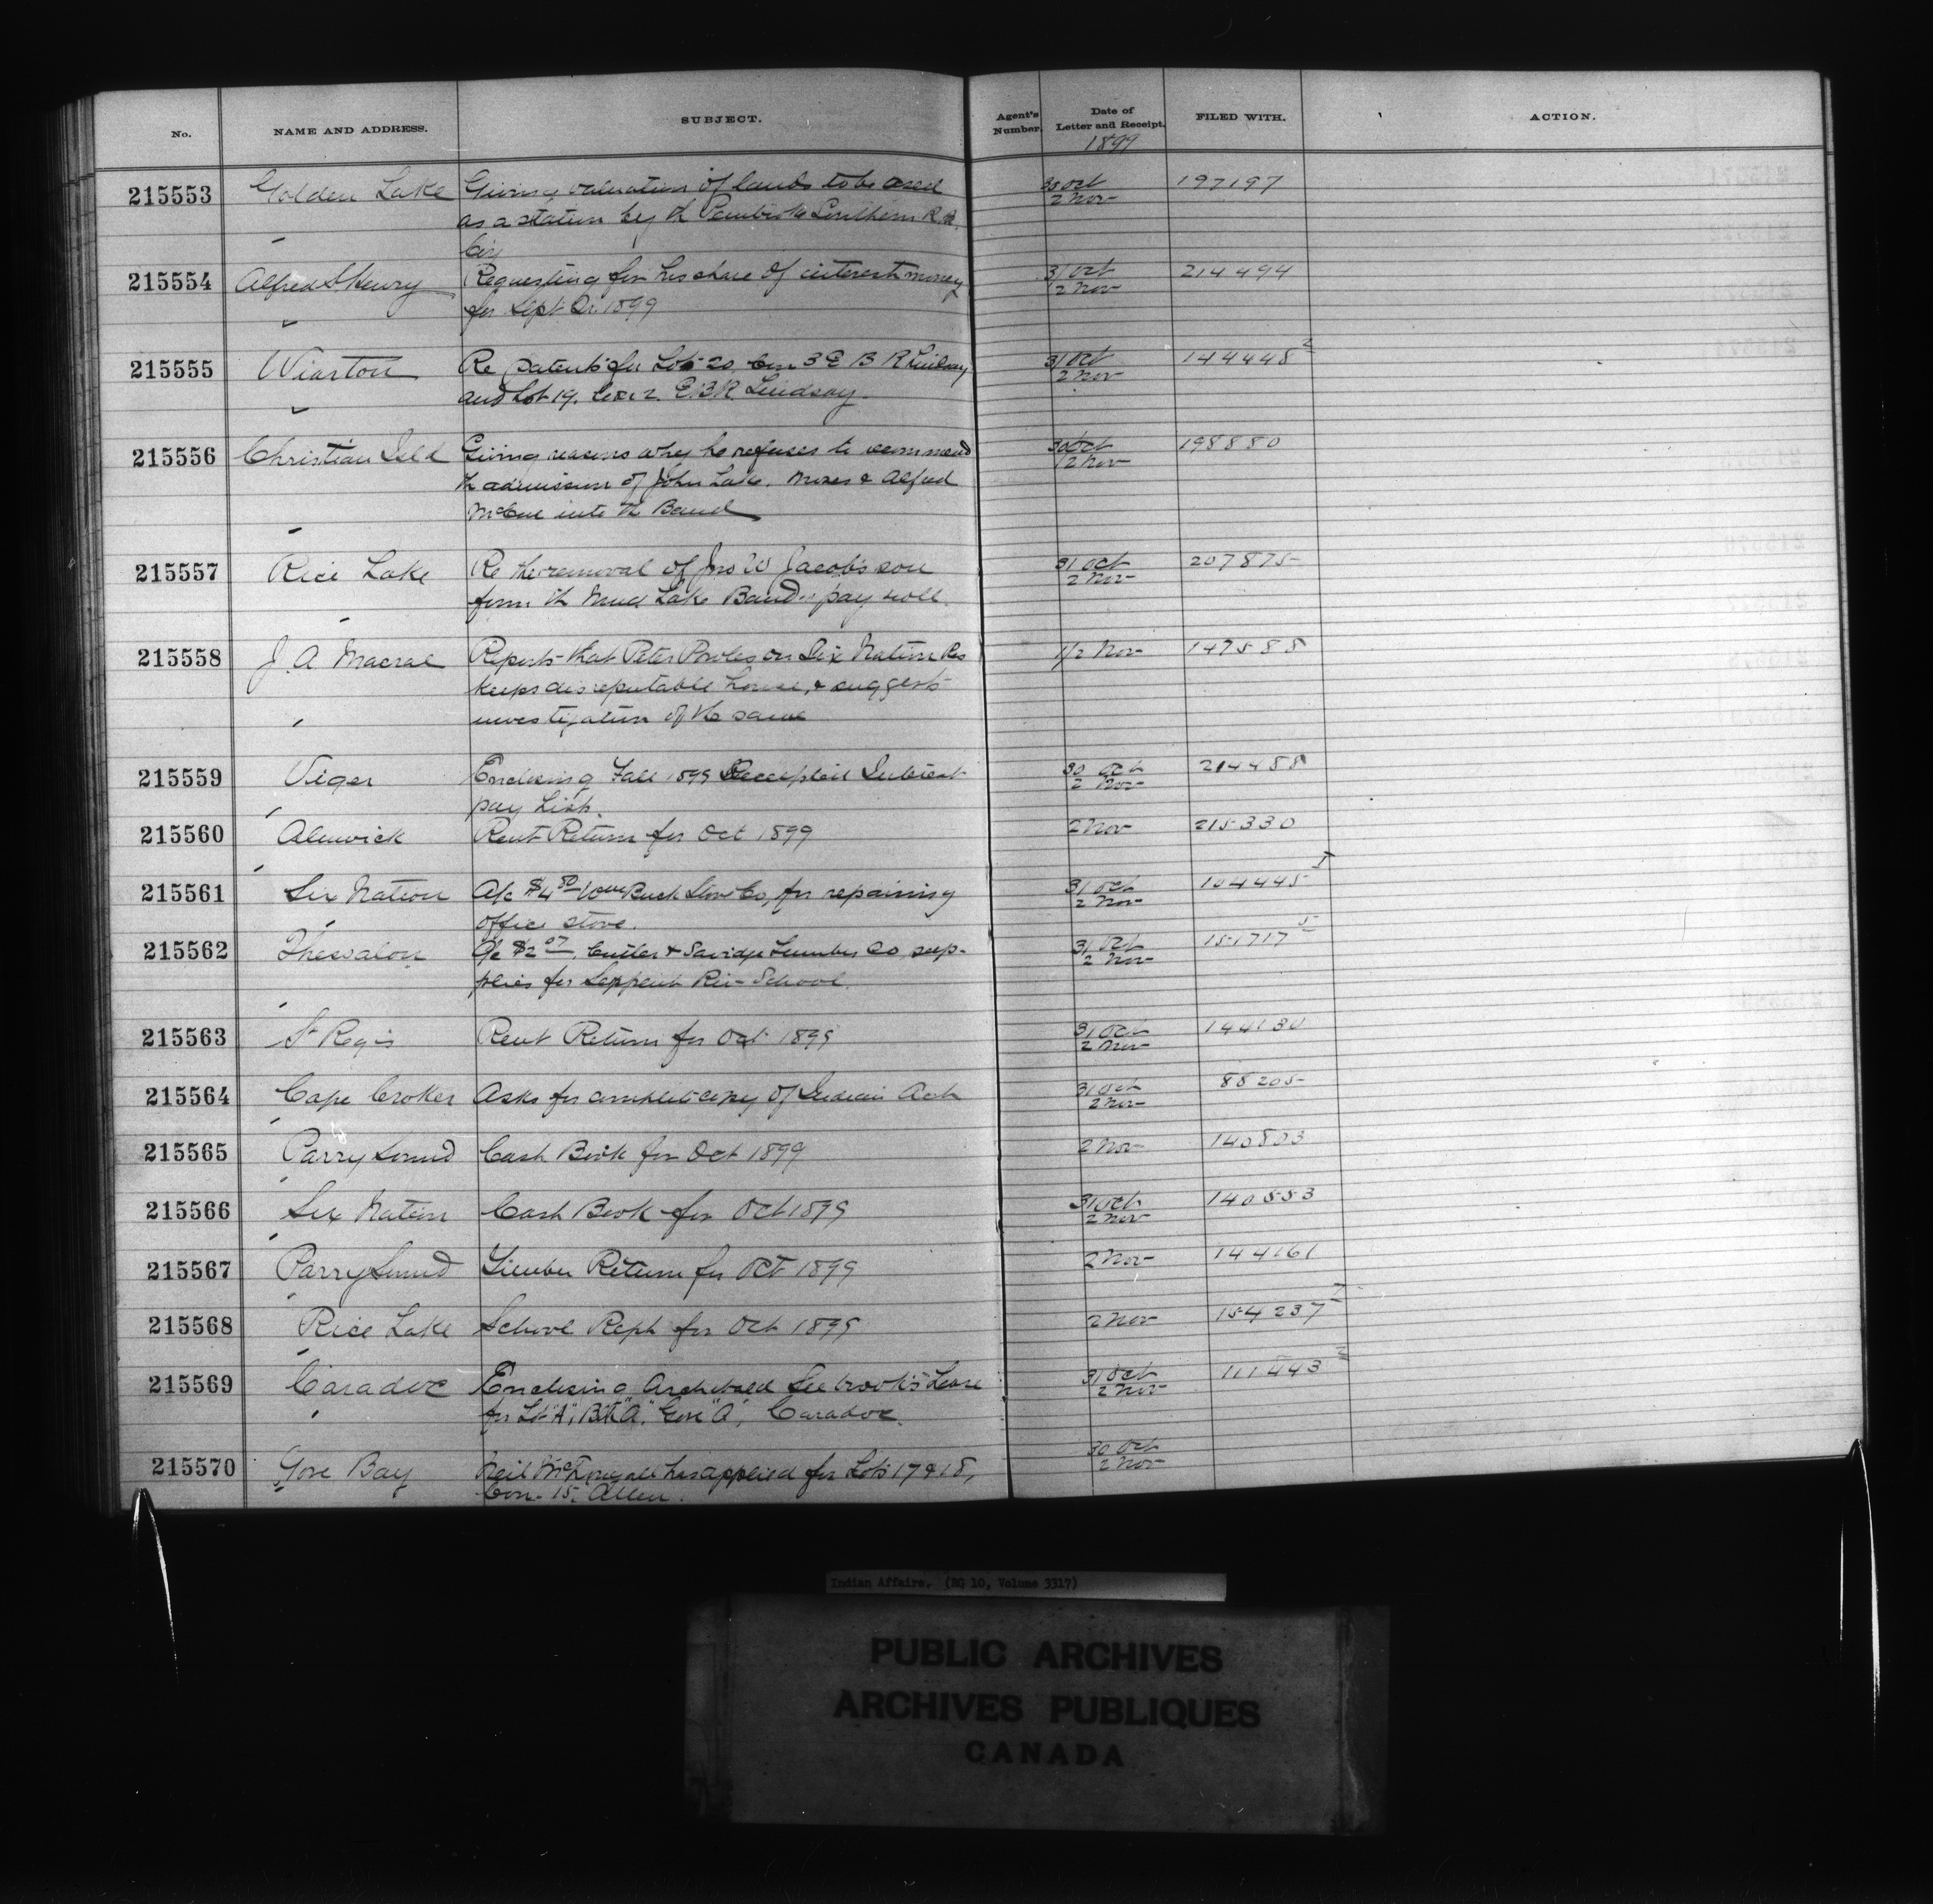 No. NAME AND ADDRESS. SUBJECT. Agent's Number. Date of Letter and Receipt. FILED WITH. ACTION.
1899
215553 Golden Lake Giving valuation of lands to be used 30 Oct 197197
as a station by th Pembroke Southern R.R. 2 Nov
Coy
215554 Alfred St Henry Requesting for his share of interest money 31 Oct 214494
for Sept Qr. 1899 2 Nov
215555 Wiarton Re patents for Lots 20, Con 3 E B R Lindsay 31 Oct 144448 2
and Lot 19. Con 2. E.B.R. Lindsay. 2 Nov
215556 Christian Isld Giving reasons why he refuses to recommend 30 Oct 198880
th admission of John Lake, Moses & Alfred 2 Nov
McCue into th Band
215557 Rice Lake Re the removal of Jno W Jacobs son 31 Oct 207875
from th Mud Lake Band's pay roll. 2 Nov
215558 J. A. Macrae Reports that Peter Powles on Six Nation Res 1/2 Nov 147588
keeps disreputable house, & suggests
investigation of the same
215559 Viger Enclosing Fall 1899 Interest 30 Oct 214488
pay List. 2 Nov
215560 Alnwick Rent Return for Oct 1899 2 Nov 215330
215561 Six Nation A/c $4.50 Wm Buck Stove Co, for repairing 31 Oct 104445
office stove. 2 Nov
215562 Thessalon A/c $2.07 Cutler & Savidge Lumber Co sup- 31 Oct 151717 5
plies for Serpent Riv- School. 2 Nov
215563 St Regis Rent Return for Oct 1899 31 Oct 144130
2 Nov
215564 Cape Croker Asks for complete copy of Indian Act 31 Oct 88205
2 Nov
215565 Parry Sound Cash Book for Oct 1899 2 Nov 140803
215566 Six Nation Cash Book for Oct 1899 31 Oct 140553
2 Nov
215567 Parry Sound Timber Return for Oct 1899 2 Nov 144161
215568 Rice Lake School Rept for Oct 1899 2 Nov 154237 7
215569 Caradoc Enclosing Archibald Seebrook's Lease 31 Oct 111443
for Lot "A", "A", Gore "A", Caradoc. 2 Nov
215570 Gore Bay Neil has applied for Lots 17 & 18, 30 Oct
Con- 15, Allen. 2 Nov
Indian Affairs. (RG 10, Volume 3317)
PUBLIC ARCHIVES
ARCHIVES PUBLIQUES
CANADA